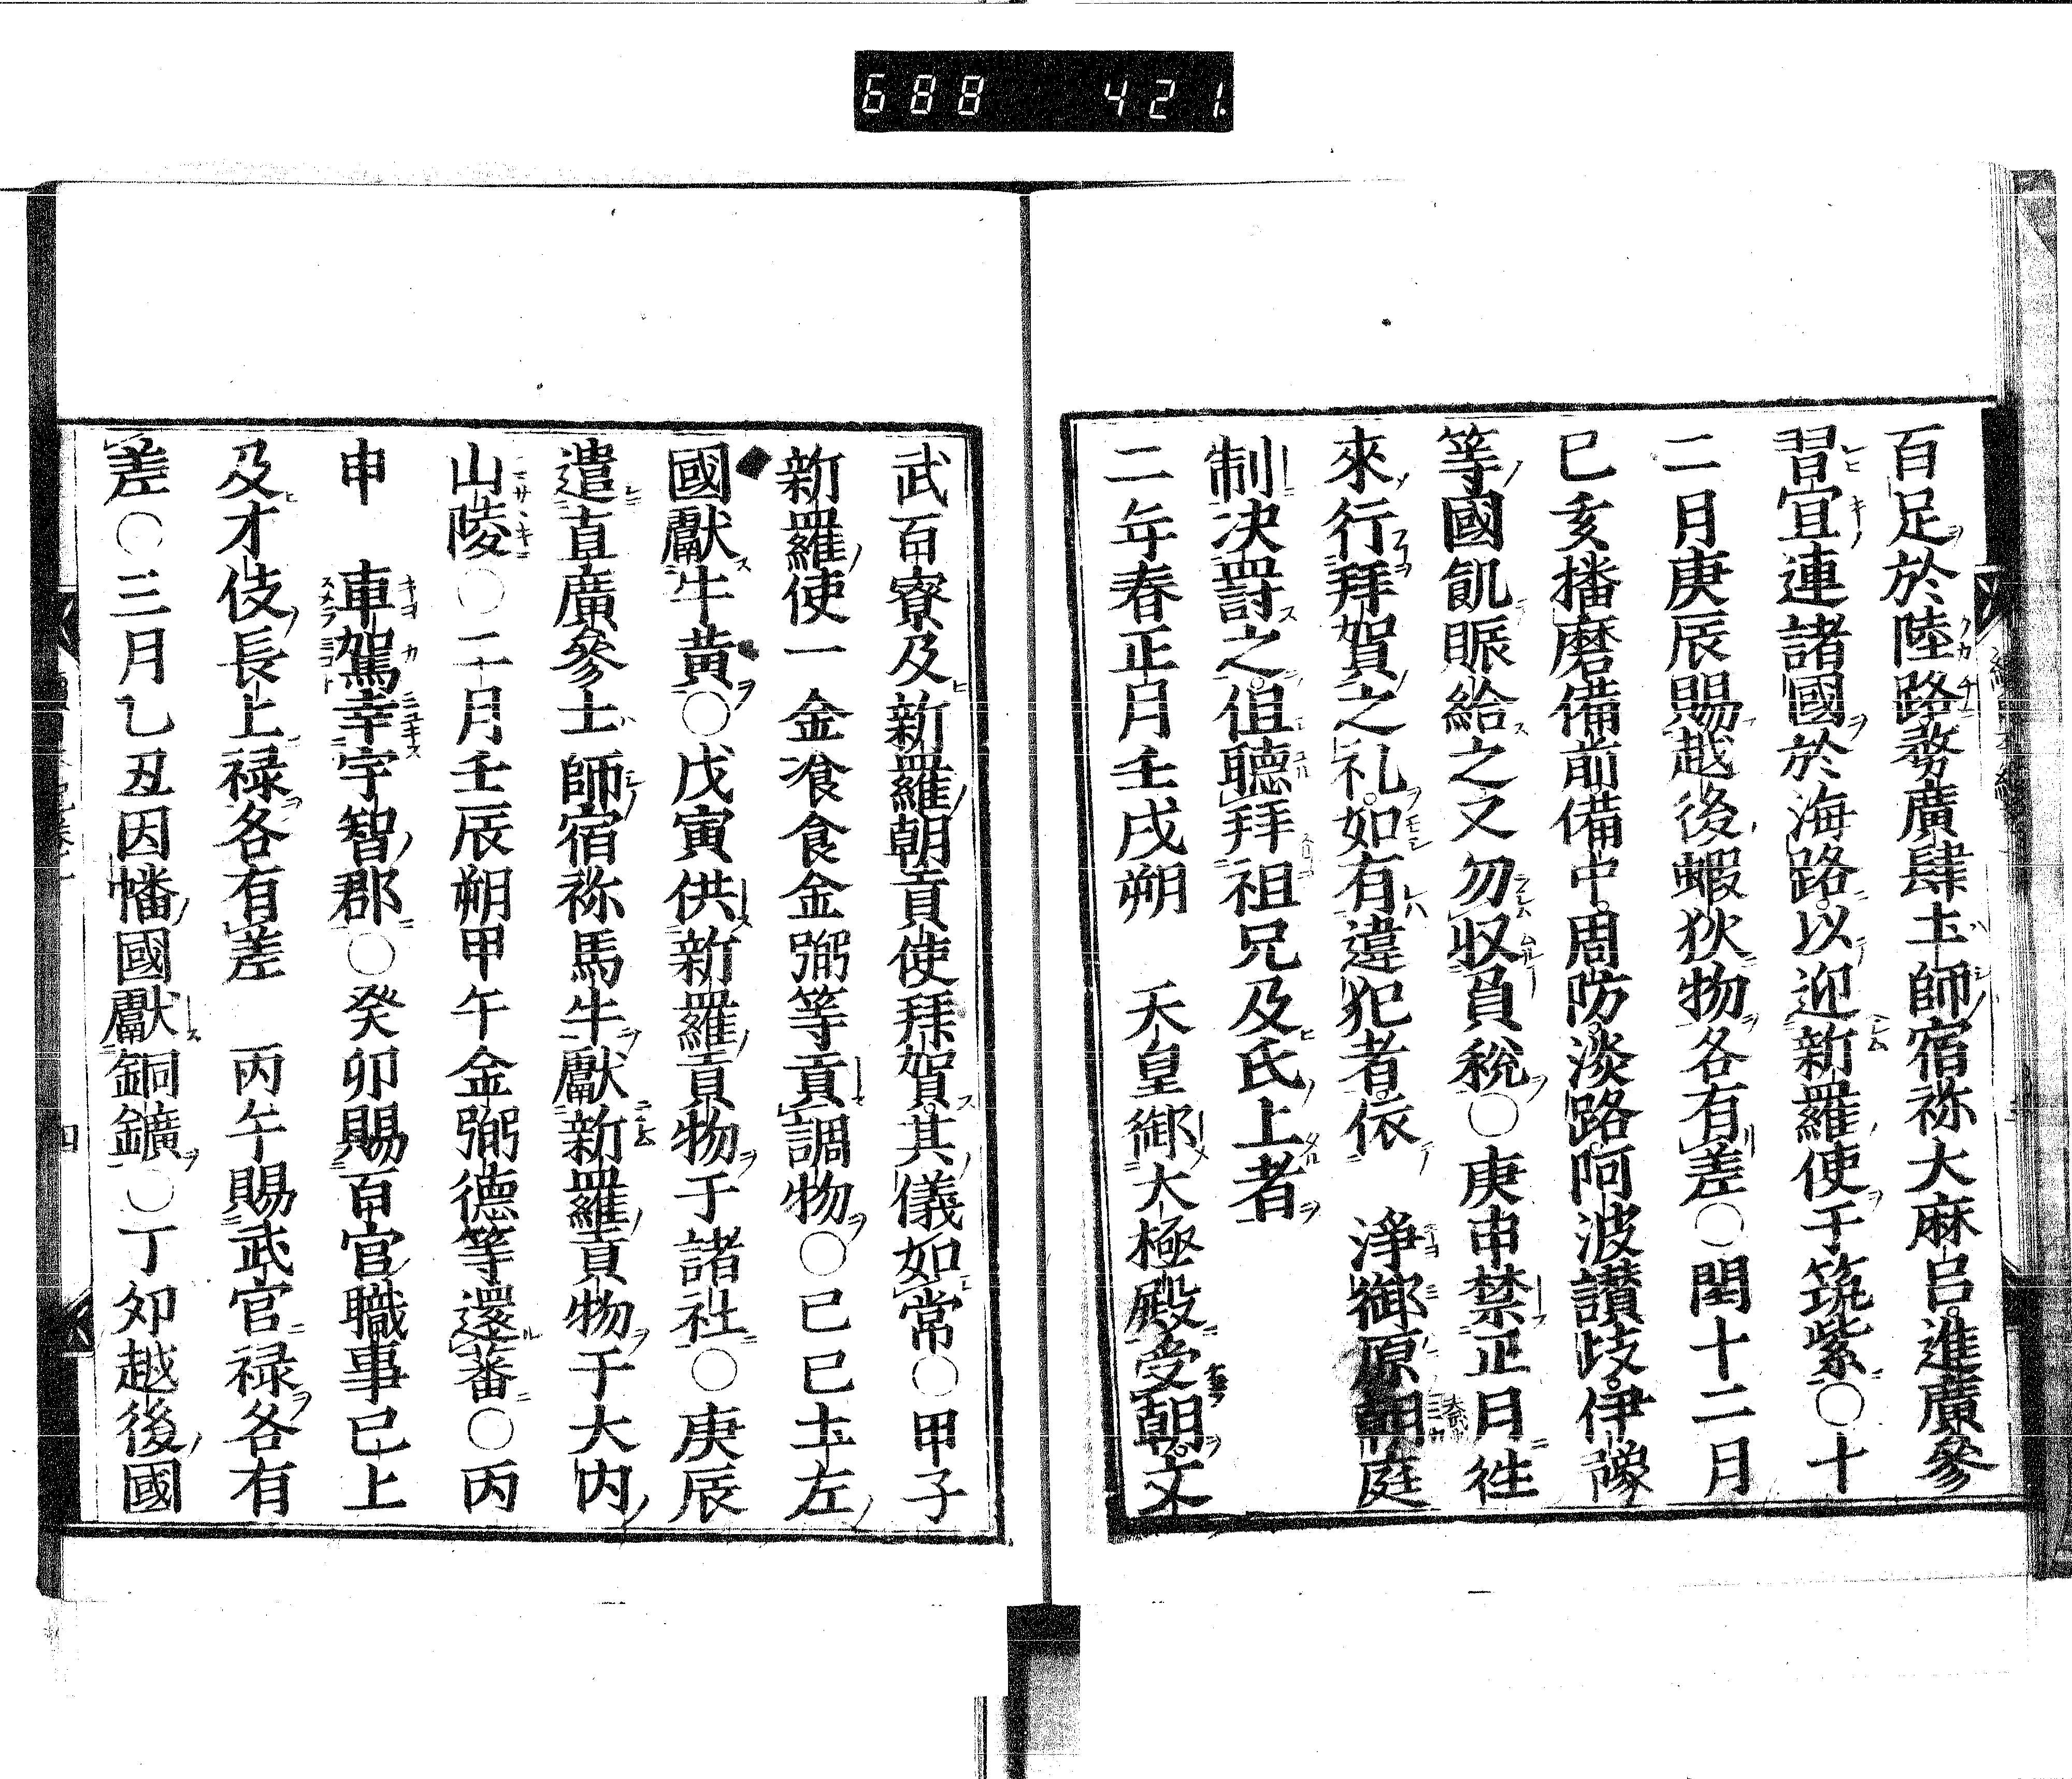 688 421.
百足於陸路務廣肆土師宿祢大麻呂進廣參
習宜連諸國於海路以迎新羅使于筑紫○十
二月庚辰賜越後蝦狄物各有差○閏十二月
己亥播磨備前備中周防淡路阿波讃岐伊豫
等國飢賑給之又勿収負稅○庚申禁正月往
來行拜賀之礼如有違犯者依　浄御原朝庭
制決罸之但聽拜祖兄及氏上者
二年春正月壬戌朔　天皇御大極殿受朝文
武百寮及新羅朝貢使拜賀其儀如常○甲子
新羅使一金飡食金弼等貢調物○己巳土左
國獻牛黄○戊寅供新羅貢物于諸社○庚辰
遣直廣參土師宿祢馬牛獻新羅貢物于大内
山陵○二月壬辰朔甲午金弼德等還蕃○丙
申　車駕幸宇智郡○癸卯賜百官職事已上
及才伎長上禄各有差　丙午賜武官禄各有
差○三月乙丑因幡國獻銅鑛○丁夘越後國
四